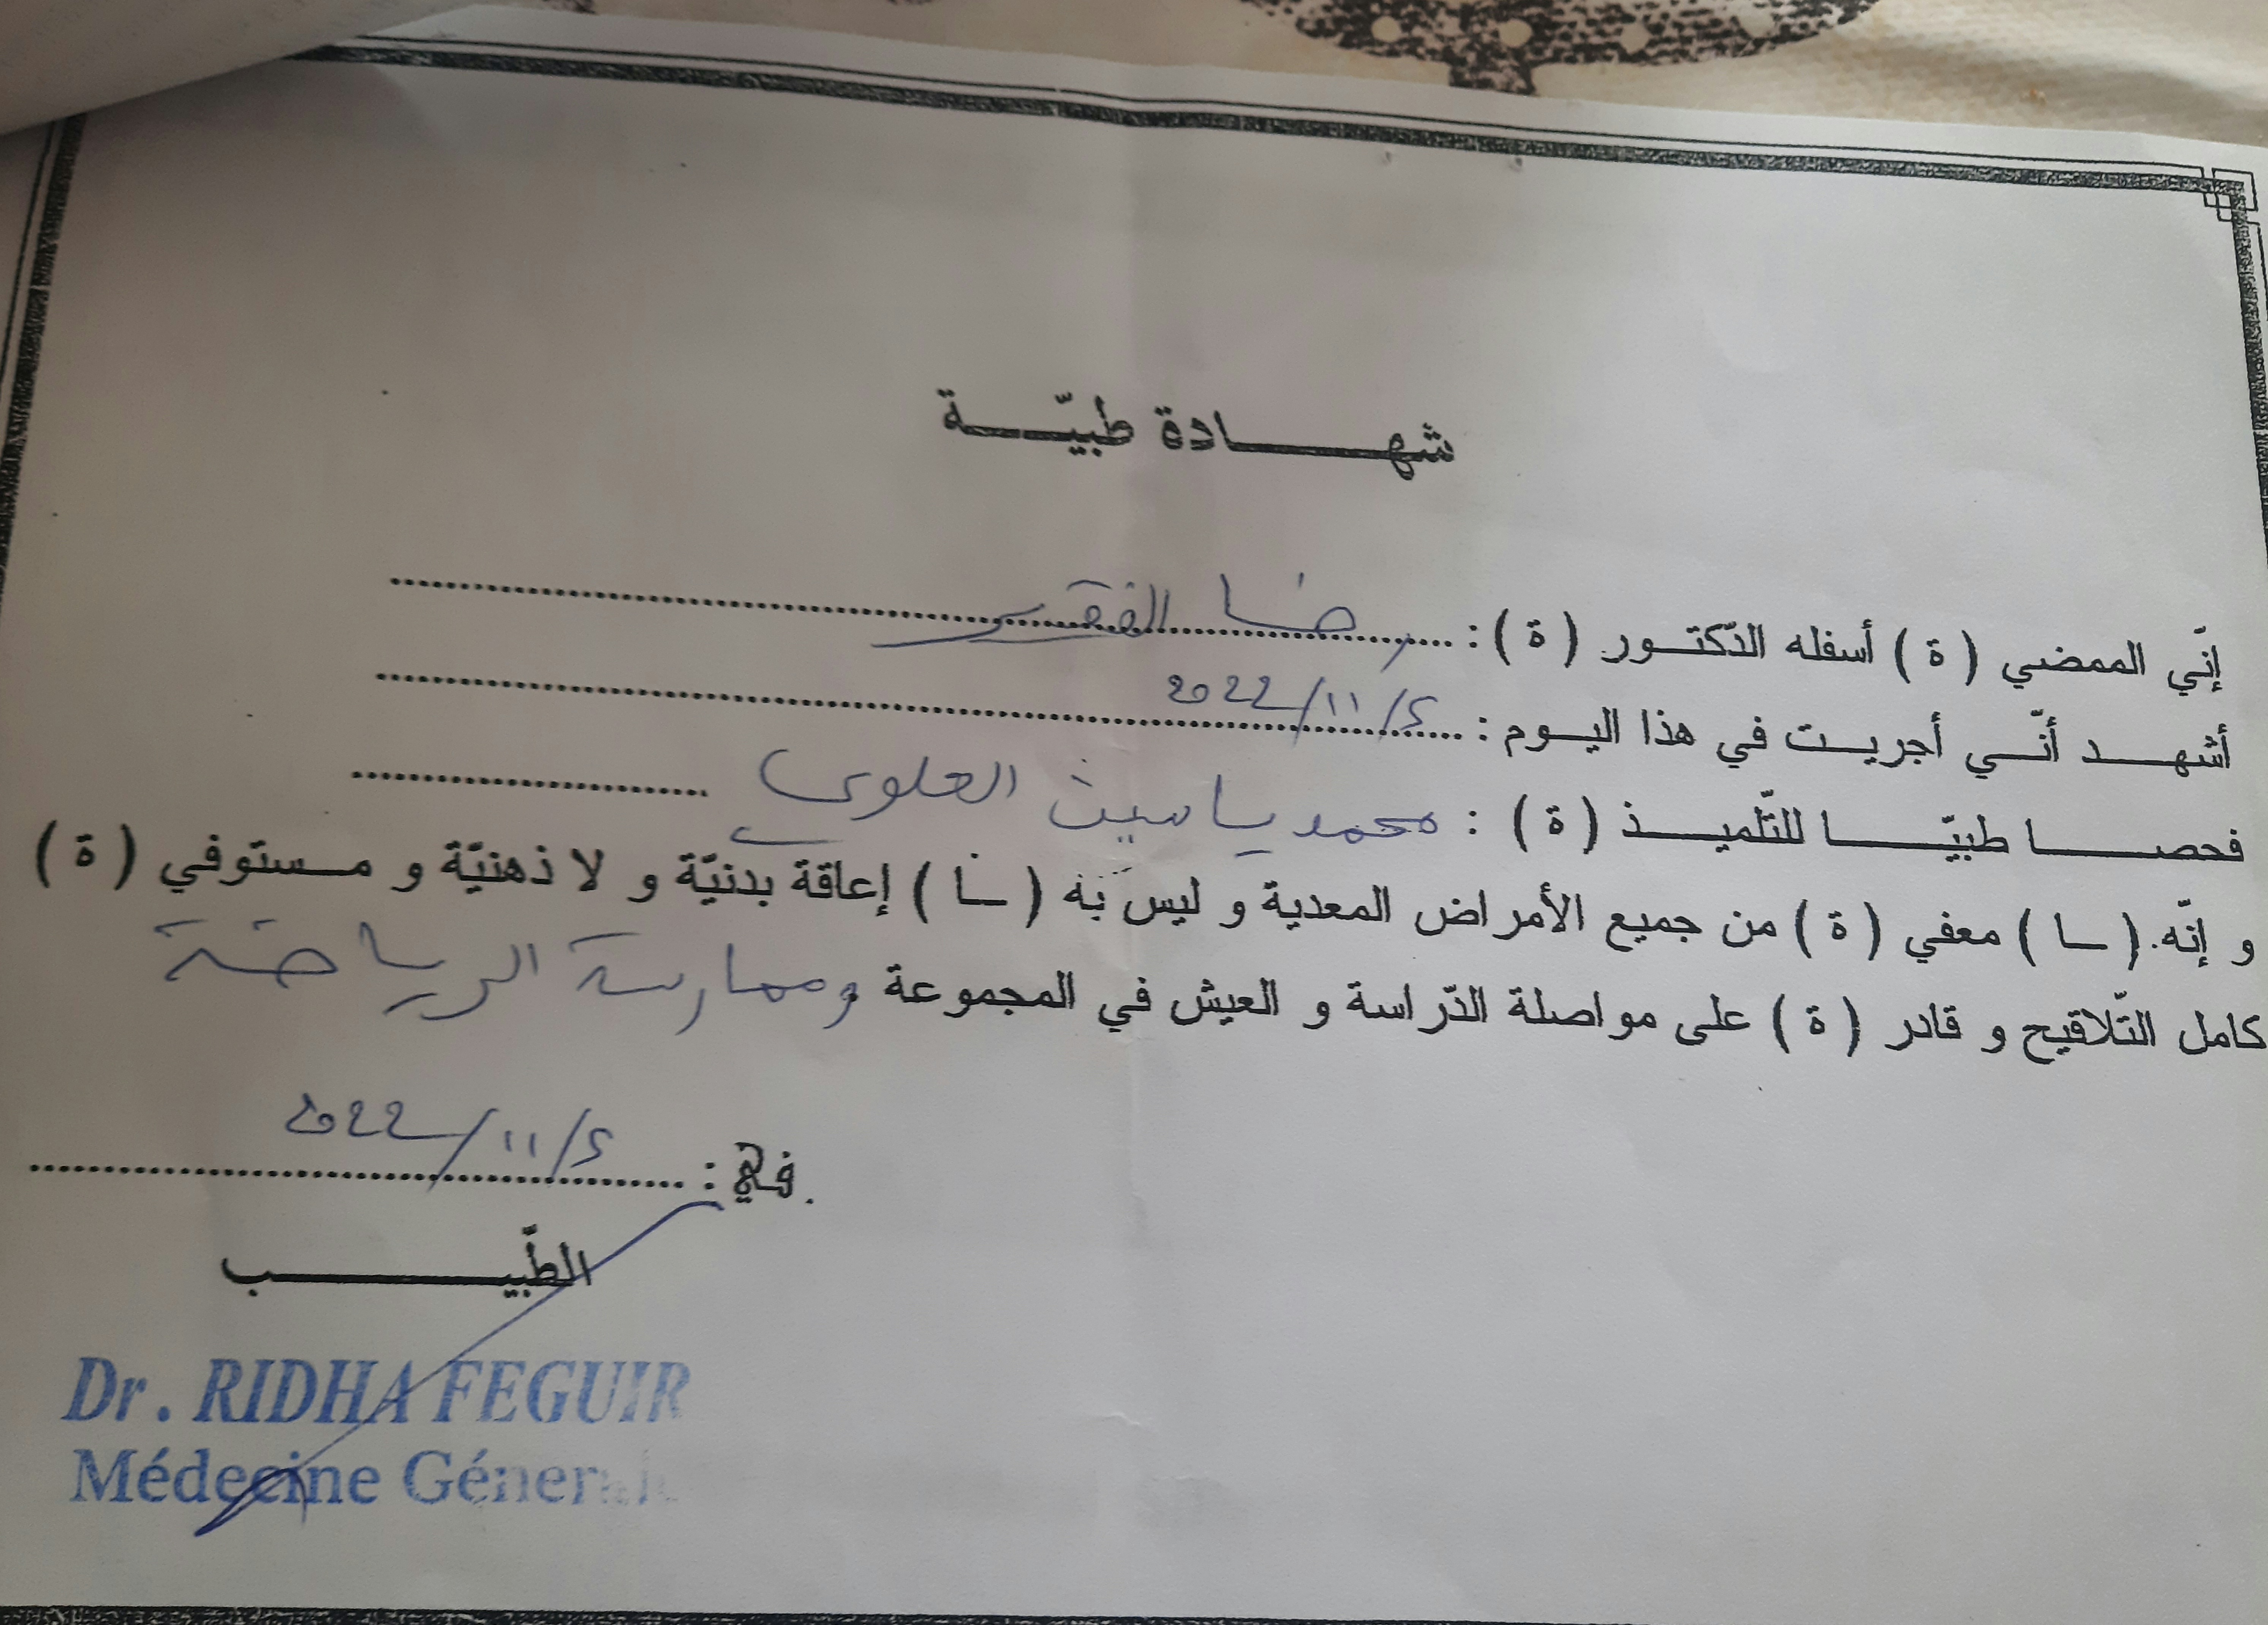 شهادة طبيّة
إنّي الممضي ( ة ) أسفله الدّكتور ( ة ) : رضا الفقير
أشهد أنّي أجريت في هذا اليوم : 2022/11/5
فحصا طبيّا للتّلميذ ( ة ) : محمد ياسين العلوي
و إنّه ( ـا ) معفي ( ة ) من جميع الأمراض المعدية و ليس به ( ـا ) إعاقة بدنيّة و لا ذهنيّة و مستوفي ( ة )
كامل التّلاقيح و قادر ( ة ) على مواصلة الدّراسة و العيش في المجموعة وممارسة الرياضة
في : 2022/11/5
الطّبيب
Dr. RIDHA FEGUIR
Médecine Générale